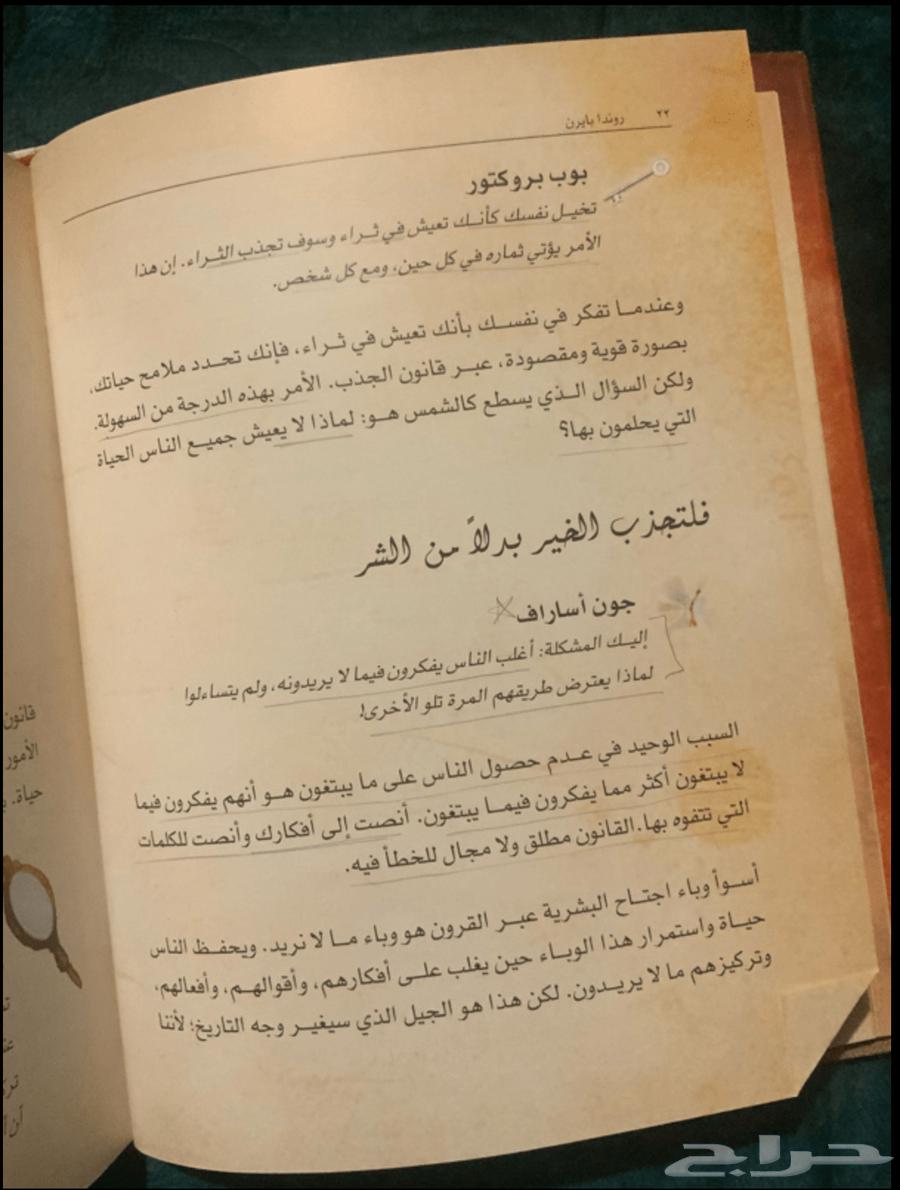 ٢٢ روندا بايرن
بوب بروكتور
تخيل نفسك كأنك تعيش في ثراء وسوف تجذب الثراء. إن هذا
الأمر يؤتي ثماره في كل حين، ومع كل شخص.
وعندما تفكر في نفسك بأنك تعيش في ثراء، فإنك تحدد ملامح حياتك،
بصورة قوية ومقصودة، عبر قانون الجذب. الأمر بهذه الدرجة من السهولة.
ولكن السؤال الذي يسطع كالشمس هو: لماذا لا يعيش جميع الناس الحياة
التي يحلمون بها؟
فلتجذب الخير بدلاً من الشر
جون أساراف
إليك المشكلة: أغلب الناس يفكرون فيما لا يريدونه، ولم يتساءلوا
لماذا يعترض طريقهم المرة تلو الأخرى!
السبب الوحيد في عدم حصول الناس على ما يبتغون هو أنهم يفكرون فيما
لا يبتغون أكثر مما يفكرون فيما يبتغون. أنصت إلى أفكارك وأنصت للكلمات
التي تتفوه بها. القانون مطلق ولا مجال للخطأ فيه.
أسوأ وباء اجتاح البشرية عبر القرون هو وباء ما لا نريد. ويحفظ الناس
حياة واستمرار هذا الوباء حين يغلب على أفكارهم، وأقوالهم، وأفعالهم،
وتركيزهم ما لا يريدون. لكن هذا هو الجيل الذي سيغير وجه التاريخ؛ لأننا
قانون
الأمور
حياة.
حراج